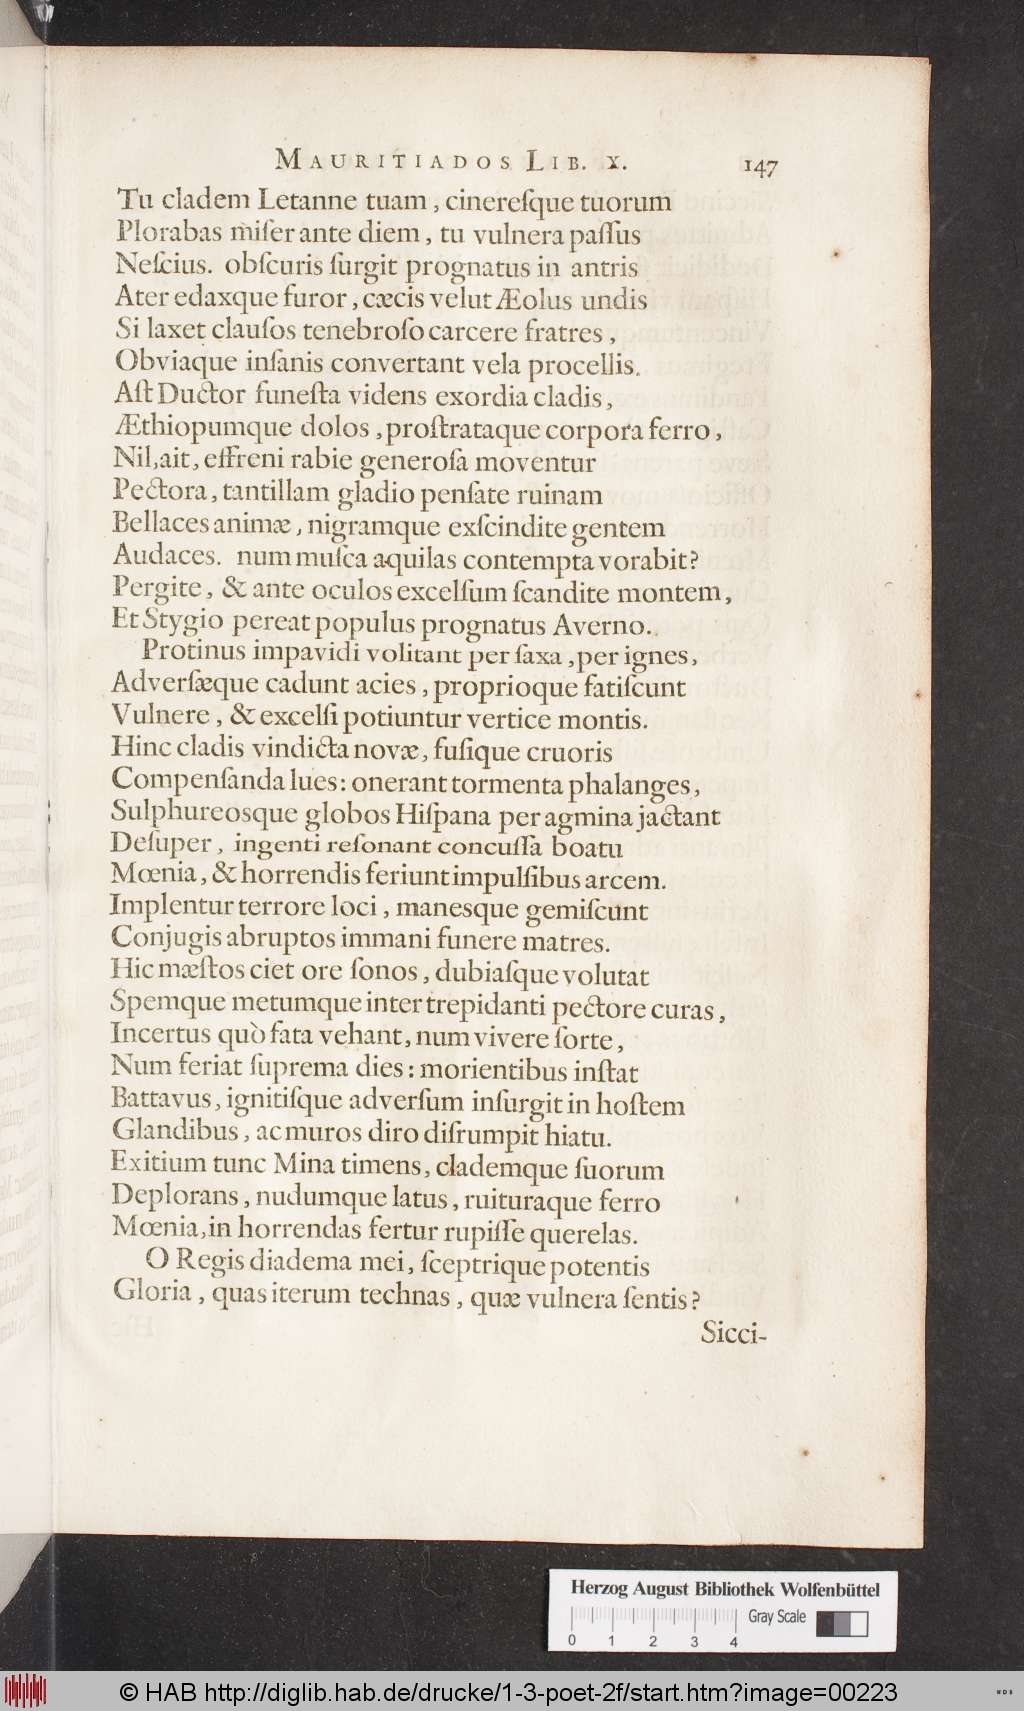 MAURITIADOS LIB. X. 147
Tu cladem Letanne tuam, cinereſque tuorum
Plorabas miſer ante diem, tu vulnera paſſus
Neſcius. obſcuris ſurgit prognatus in antris
Ater edaxque furor, cæcis velut Æolus undis
Si laxet clauſos tenebroſo carcere fratres,
Obviaque inſanis convertant vela procellis.
Aſt Ductor funeſta videns exordia cladis,
Æthiopumque dolos, proſtrataque corpora ferro,
Nil, ait, effreni rabie generoſa moventur
Pectora, tantillam gladio penſate ruinam
Bellaces animæ, nigramque exſcindite gentem
Audaces. num muſca aquilas contempta vorabit?
Pergite, & ante oculos excelſum ſcandite montem,
Et Stygio pereat populus prognatus Averno.
Protinus impavidi volitant per ſaxa, per ignes,
Adverſæque cadunt acies, proprioque fatiſcunt
Vulnere, & excelſi potiuntur vertice montis.
Hinc cladis vindicta novæ, fuſique cruoris
Compenſanda lues: onerant tormenta phalanges,
Sulphureosque globos Hiſpana per agmina jactant
Deſuper, ingenti reſonant concuſſa boatu
Mœnia, & horrendis feriunt impulſibus arcem.
Implentur terrore loci, manesque gemiſcunt
Conjugis abruptos immani funere matres.
Hic mæſtos ciet ore ſonos, dubiaſque volutat
Spemque metumque inter trepidanti pectore curas,
Incertus quò fata vehant, num vivere ſorte,
Num feriat ſuprema dies: morientibus inſtat
Battavus, ignitiſque adverſum inſurgit in hoſtem
Glandibus, ac muros diro diſrumpit hiatu.
Exitium tunc Mina timens, clademque ſuorum
Deplorans, nudumque latus, ruituraque ferro
Mœnia, in horrendas fertur rupiſſe querelas.
O Regis diadema mei, ſceptrique potentis
Gloria, quas iterum technas, quæ vulnera ſentis?
Sicci-
Herzog August Bibliothek Wolfenbüttel
Gray Scale
0 1 2 3 4
© HAB http://diglib.hab.de/drucke/1-3-poet-2f/start.htm?image=00223